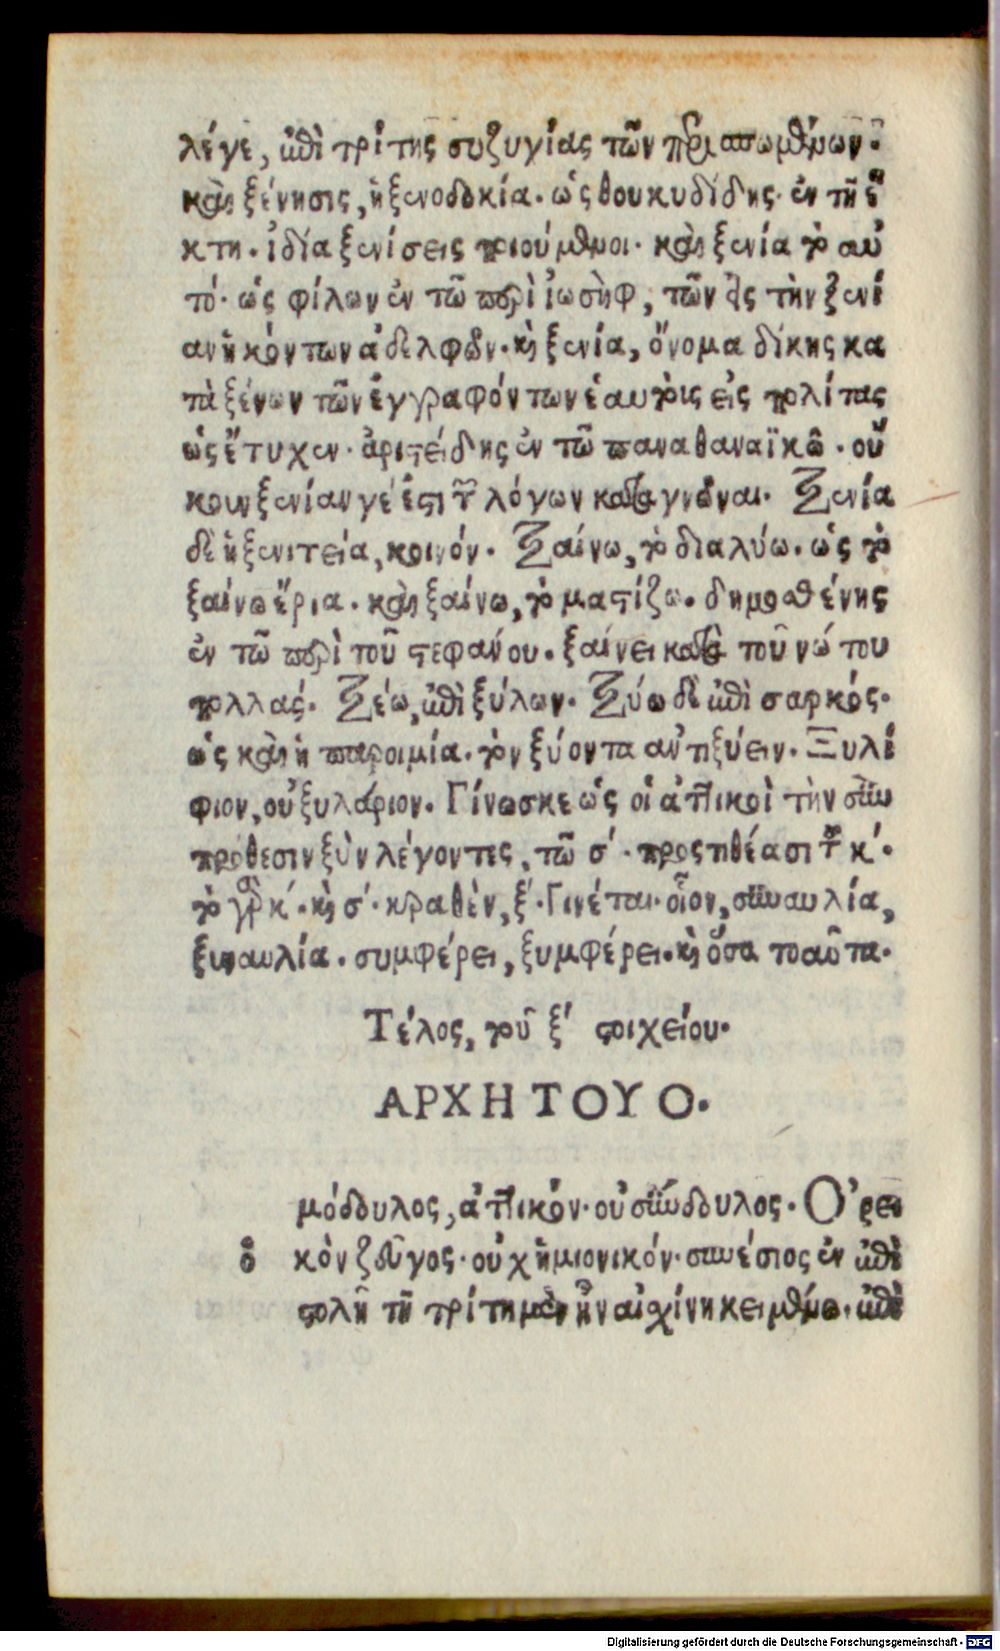 λέγε, ἐπὶ τρίτης συζυγίας τῶν περισπωμένων.
καὶ ξένησις, ἢ ξενοδοκία. ὡς θουκυδίδης. ἐν τῇ ἕ
κτη. ἰδία ξενίσεις ποιούμενοι. καὶ ξενία τὸ αὐ
τό. ὡς φίλων ἐν τῶ περὶ ἰωσὴφ, τῶν εἰς τὴν ξενί
αν ἡκόντων ἀδελφῶν. καὶ ξενία, ὄνομα δίκης κα
τὰ ξένων τῶν ἐγγραφόντων ἑαυτοὺς εἰς πολίτας
ὡς ἔτυχεν. ἀριστείδης ἐν τῶ παναθαναϊκῶ. οὔ
κουν ξενίαν γέ ἐστι τῶν λόγων καταγνῶναι. Ξενία
δὲ ἡ ξενιτεία, κοινόν. Ξαίνω, τὸ διαλύω. ὡς τὸ
ξαίνω ἔρια. καὶ ξαίνω, τὸ μαστίζω. δημοσθένης
ἐν τῶ περὶ τοῦ στεφάνου. ξαίνει κατὰ τοῦ νώτου
πολλάς. Ξέω, ἐπὶ ξύλων. Ξύω δὲ ἐπὶ σαρκός.
ὡς καὶ ἡ παροιμία. τὸν ξύοντα αὐτιξύειν. Ξυλί
φιον, οὐ ξυλάριον. Γίνωσκε ὡς οἱ ἀττικοὶ τὴν σὺν
πρόθεσιν ξὺν λέγοντες, τῶ σ΄. προστιθέασι τὸ κ΄.
τὸ γὰρ κ΄. καὶ σ΄. κραθὲν, ξ΄. Γινέται. οἷον, συναυλία,
ξυναυλία. συμφέρει, ξυμφέρει. καὶ ὅσα τοιαῦτα.
Τέλος, τοῦ ξ΄ στοιχείου.
ΑΡΧΗ ΤΟΥ Ο.
μόδουλος, ἀττικόν. οὐ σύνδουλος. Ὀρει
ὁ κὸν ζεῦγος. οὐχ ἡμιονικόν. συνέσιος ἐν ἐπι
στολῇ τῇ τρίτη μὲν ἦν αἰσχίνη κειμένω. ἐπὶ